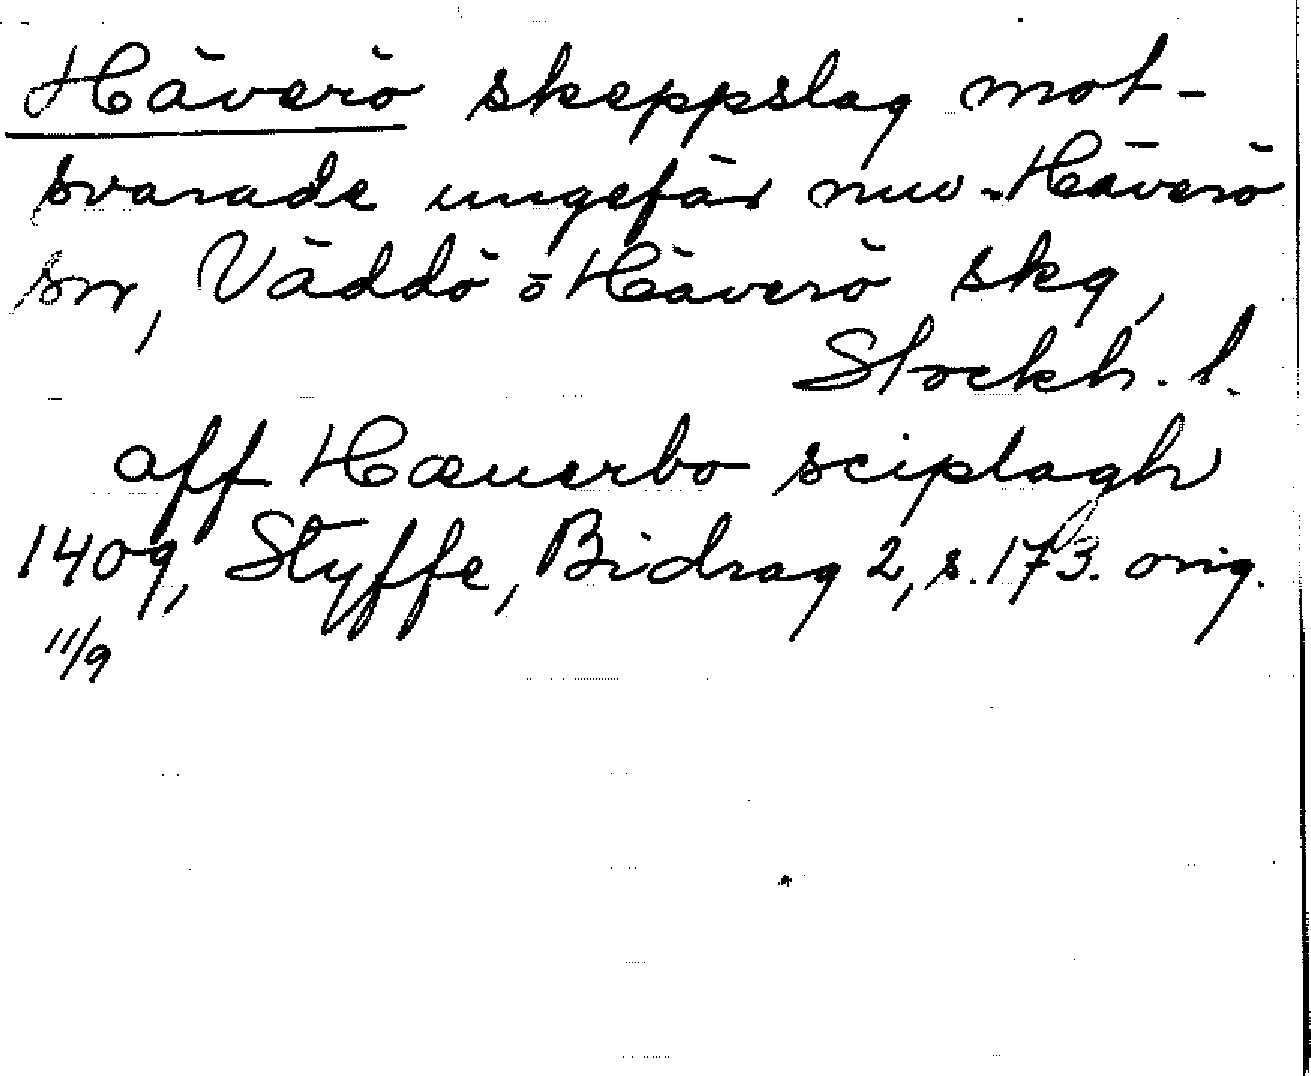 Häverö skeppslag mot-
svarade ungefär nuv. Häverö
sn, Väddö o Häverö skg,
Stockh. l.
aff Hæuerbo sciplagh
1409, Styffe, Bidrag 2, s. 173. orig.
11/9